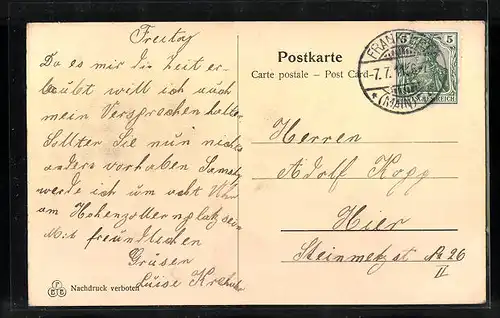 Freitag
Da es mir die Zeit er-
laubt will ich auch
mein Versprechen halten
Sollten Sie nun nichts
anders vorhaben Samstg
werde ich um acht Uhr
am Hohenzollernplatz sein
Mit freundlichen
Grüsen
Luise
Nachdruck verboten
Postkarte
Carte postale – Post Card
FRANKFURT
7.7.11
(MAIN)
5
REICH
Herren
Adolf Kopp
Hier
Steinmetzst № 26
II